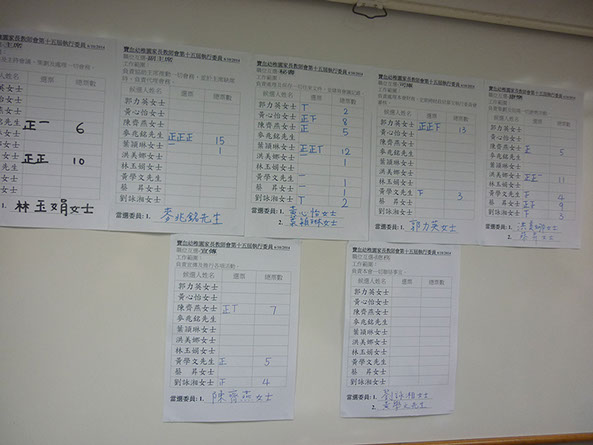 主席
候選人姓名 選票 總票數
正一 6
正正 10
當選委員: 1. 林玉娟女士
寶血幼稚園家長教師會第十五屆執行委員
職位互選:副主席
工作範圍:
候選人姓名 選票 總票數
郭力英女士
黃心怡女士
陳齊燕女士
麥兆銘先生 正正正 15
葉頴琳女士 一 1
洪美娜女士
林玉娟女士
黃學文先生
蔡 昇女士
劉詠湘女士
當選委員: 1. 麥兆銘先生
寶血幼稚園家長教師會第十五屆執行委員
職位互選:秘書
工作範圍:
候選人姓名 選票 總票數
郭力英女士 T 2
黃心怡女士 正下 8
陳齊燕女士 正 5
麥兆銘先生
葉頴琳女士 正正T 12
洪美娜女士 一 1
林玉娟女士
黃學文先生 一 1
蔡 昇女士 一 1
劉詠湘女士 T 2
當選委員: 1. 黃心怡女士
2. 葉頴琳女士
寶血幼稚園家長教師會第十五屆執行委員
職位互選:司庫
工作範圍:
候選人姓名 選票 總票數
郭力英女士 正正下 13
黃心怡女士
陳齊燕女士
麥兆銘先生
葉頴琳女士
洪美娜女士
林玉娟女士
黃學文先生 下 3
蔡 昇女士
劉詠湘女士
當選委員: 1. 郭力英女士
寶血幼稚園家長教師會第十五屆執行委員
工作範圍:
候選人姓名 選票 總票數
郭力英女士
黃心怡女士
陳齊燕女士 正 5
麥兆銘先生
葉頴琳女士
洪美娜女士 正正一 11
林玉娟女士
黃學文先生 4
蔡 昇女士 9
劉詠湘女士 下 3
當選委員: 1. 洪美娜女士
2. 蔡昇女士
寶血幼稚園家長教師會第十五屆執行委員
職位互選:宣傳
工作範圍:
負責宣傳及推行各項活動。
候選人姓名 選票 總票數
郭力英女士
黃心怡女士
陳齊燕女士 正T 7
麥兆銘先生
葉頴琳女士
洪美娜女士
林玉娟女士
黃學文先生 正 5
蔡 昇女士
劉詠湘女士 4
當選委員: 1. 陳齊燕女士
寶血幼稚園家長教師會第十五屆執行委員
職位互選:總務
工作範圍:
負責本會一切總務事宜。
候選人姓名 選票 總票數
郭力英女士
黃心怡女士
陳齊燕女士
麥兆銘先生
葉頴琳女士
洪美娜女士
林玉娟女士
黃學文先生
蔡 昇女士
劉詠湘女士
當選委員: 1. 劉詠湘女士
2. 黃學文先生